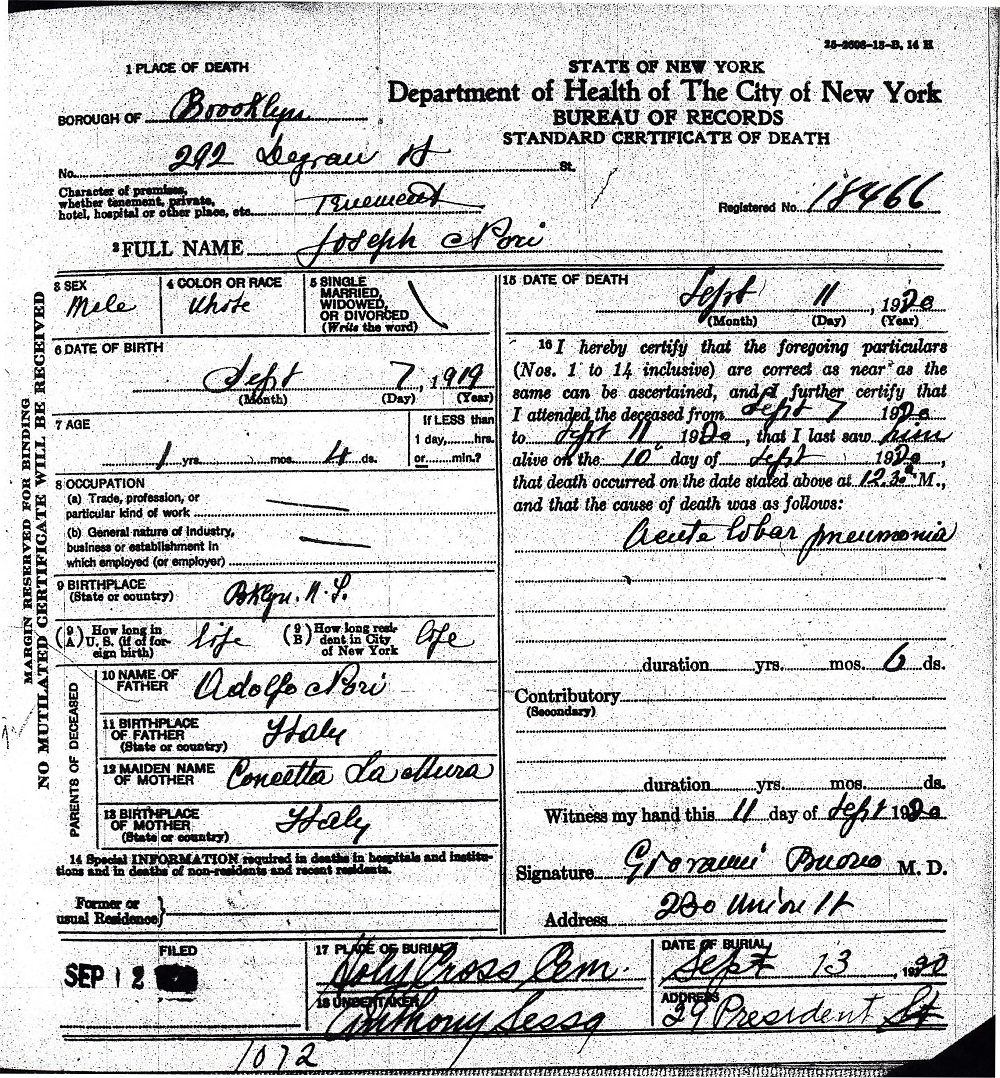 25-2608-18-B, 14 H
1 PLACE OF DEATH
BOROUGH OF Brooklyn
No. 292 Degraw St St.
Character of premises,
whether tenement, private,
hotel, hospital or other place, etc. Tenement
STATE OF NEW YORK
Department of Health of The City of New York
BUREAU OF RECORDS
STANDARD CERTIFICATE OF DEATH
Registered No. 18466
2 FULL NAME Joseph Nori
MARGIN RESERVED FOR BINDING
NO MUTILATED CERTIFICATE WILL BE RECEIVED
3 SEX
Male
4 COLOR OR RACE
White
5 SINGLE
MARRIED,
WIDOWED,
OR DIVORCED
(Write the word)
6 DATE OF BIRTH
Sept 7, 1919
(Month) (Day) (Year)
7 AGE
1 yrs. mos. 4 ds.
If LESS than
1 day, hrs.
or min.?
8 OCCUPATION
(a) Trade, profession, or
particular kind of work
(b) General nature of industry,
business or establishment in
which employed (or employer)
9 BIRTHPLACE
(State or country) Bklyn. N.Y.
(9 A) How long in
U. S. (if of for-
eign birth) life
(9 B) How long resi-
dent in City
of New York life
PARENTS OF DECEASED
10 NAME OF
FATHER Adolfo Nori
11 BIRTHPLACE
OF FATHER
(State or country) Italy
12 MAIDEN NAME
OF MOTHER Concetta La Mura
13 BIRTHPLACE
OF MOTHER
(State or country) Italy
14 Special INFORMATION required in deaths in hospitals and institu-
tions and in deaths of non-residents and recent residents.
Former or
usual Residence
15 DATE OF DEATH
Sept 11, 1920
(Month) (Day) (Year)
16 I hereby certify that the foregoing particulars
(Nos. 1 to 14 inclusive) are correct as near as the
same can be ascertained, and I further certify that
I attended the deceased from Sept 7 1920
to Sept 11, 1920, that I last saw him
alive on the 10 day of Sept 1920,
that death occurred on the date stated above at 12.30 a M.,
and that the cause of death was as follows:
Acute lobar pneumonia
duration yrs. mos. 6 ds.
Contributory
(Secondary)
duration yrs. mos. ds.
Witness my hand this 11 day of Sept 1920
Signature Giovanni Buono M. D.
Address 230 Union St
FILED
SEP 12
17 PLACE OF BURIAL
Holy Cross Cem.
DATE OF BURIAL
Sept 13, 1920
18 UNDERTAKER
Anthony Sessa
ADDRESS
29 President St
1072